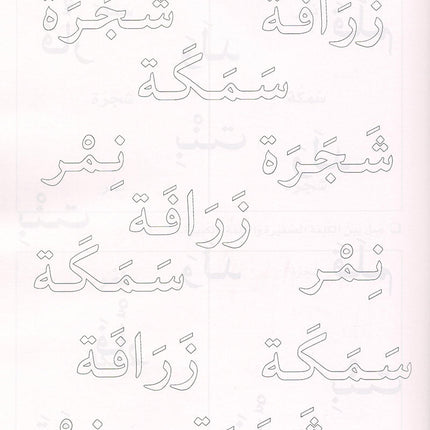 زَرَافَة شَجَرَة
سَمَكَة
شَجَرَة نِمْر
زَرَافَة
نِمْر سَمَكَة
سَمَكَة زَرَافَة